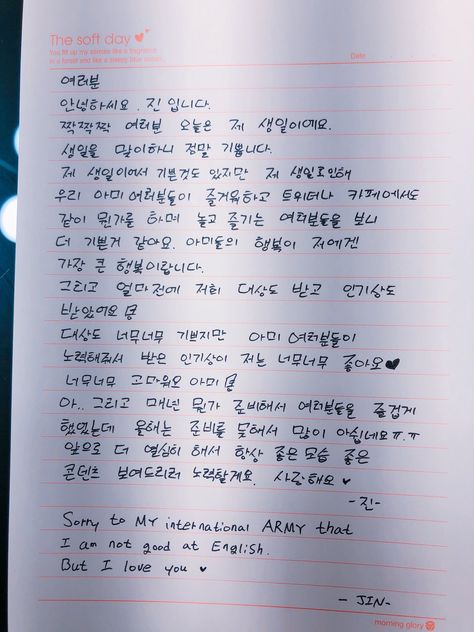 The soft day
Date
여러분
안녕하세요. 진 입니다.
짝짝짝 여러분 오늘은 제 생일이에요.
생일을 맞이하니 정말 기쁩니다.
제 생일이어서 기쁜것도 있지만 제 생일로인해
우리 아미 여러분들이 즐거워하고 트위터나 카페에서도
같이 뭔가를 하며 놀고 즐기는 여러분들을 보니
더 기쁜거 같아요. 아미들의 행복이 저에겐
가장 큰 행복이랍니다.
그리고 얼마전에 저희 대상도 받고 인기상도
받았어요
대상도 너무너무 기쁘지만 아미 여러분들이
노력해줘서 받은 인기상이 저는 너무너무 좋아요♥
너무너무 고마워요 아미
아.. 그리고 매년 뭔가 준비해서 여러분들을 즐겁게
했었는데 올해는 준비를 못해서 많이 아쉽네요ㅠ.ㅠ
앞으로 더 열심히 해서 항상 좋은모습 좋은
콘텐츠 보여드리려 노력할게요. 사랑해요 ♥
-진-
Sorry to MY international ARMY that
I am not good at English.
But I love you ♥
- JIN-
morning glory